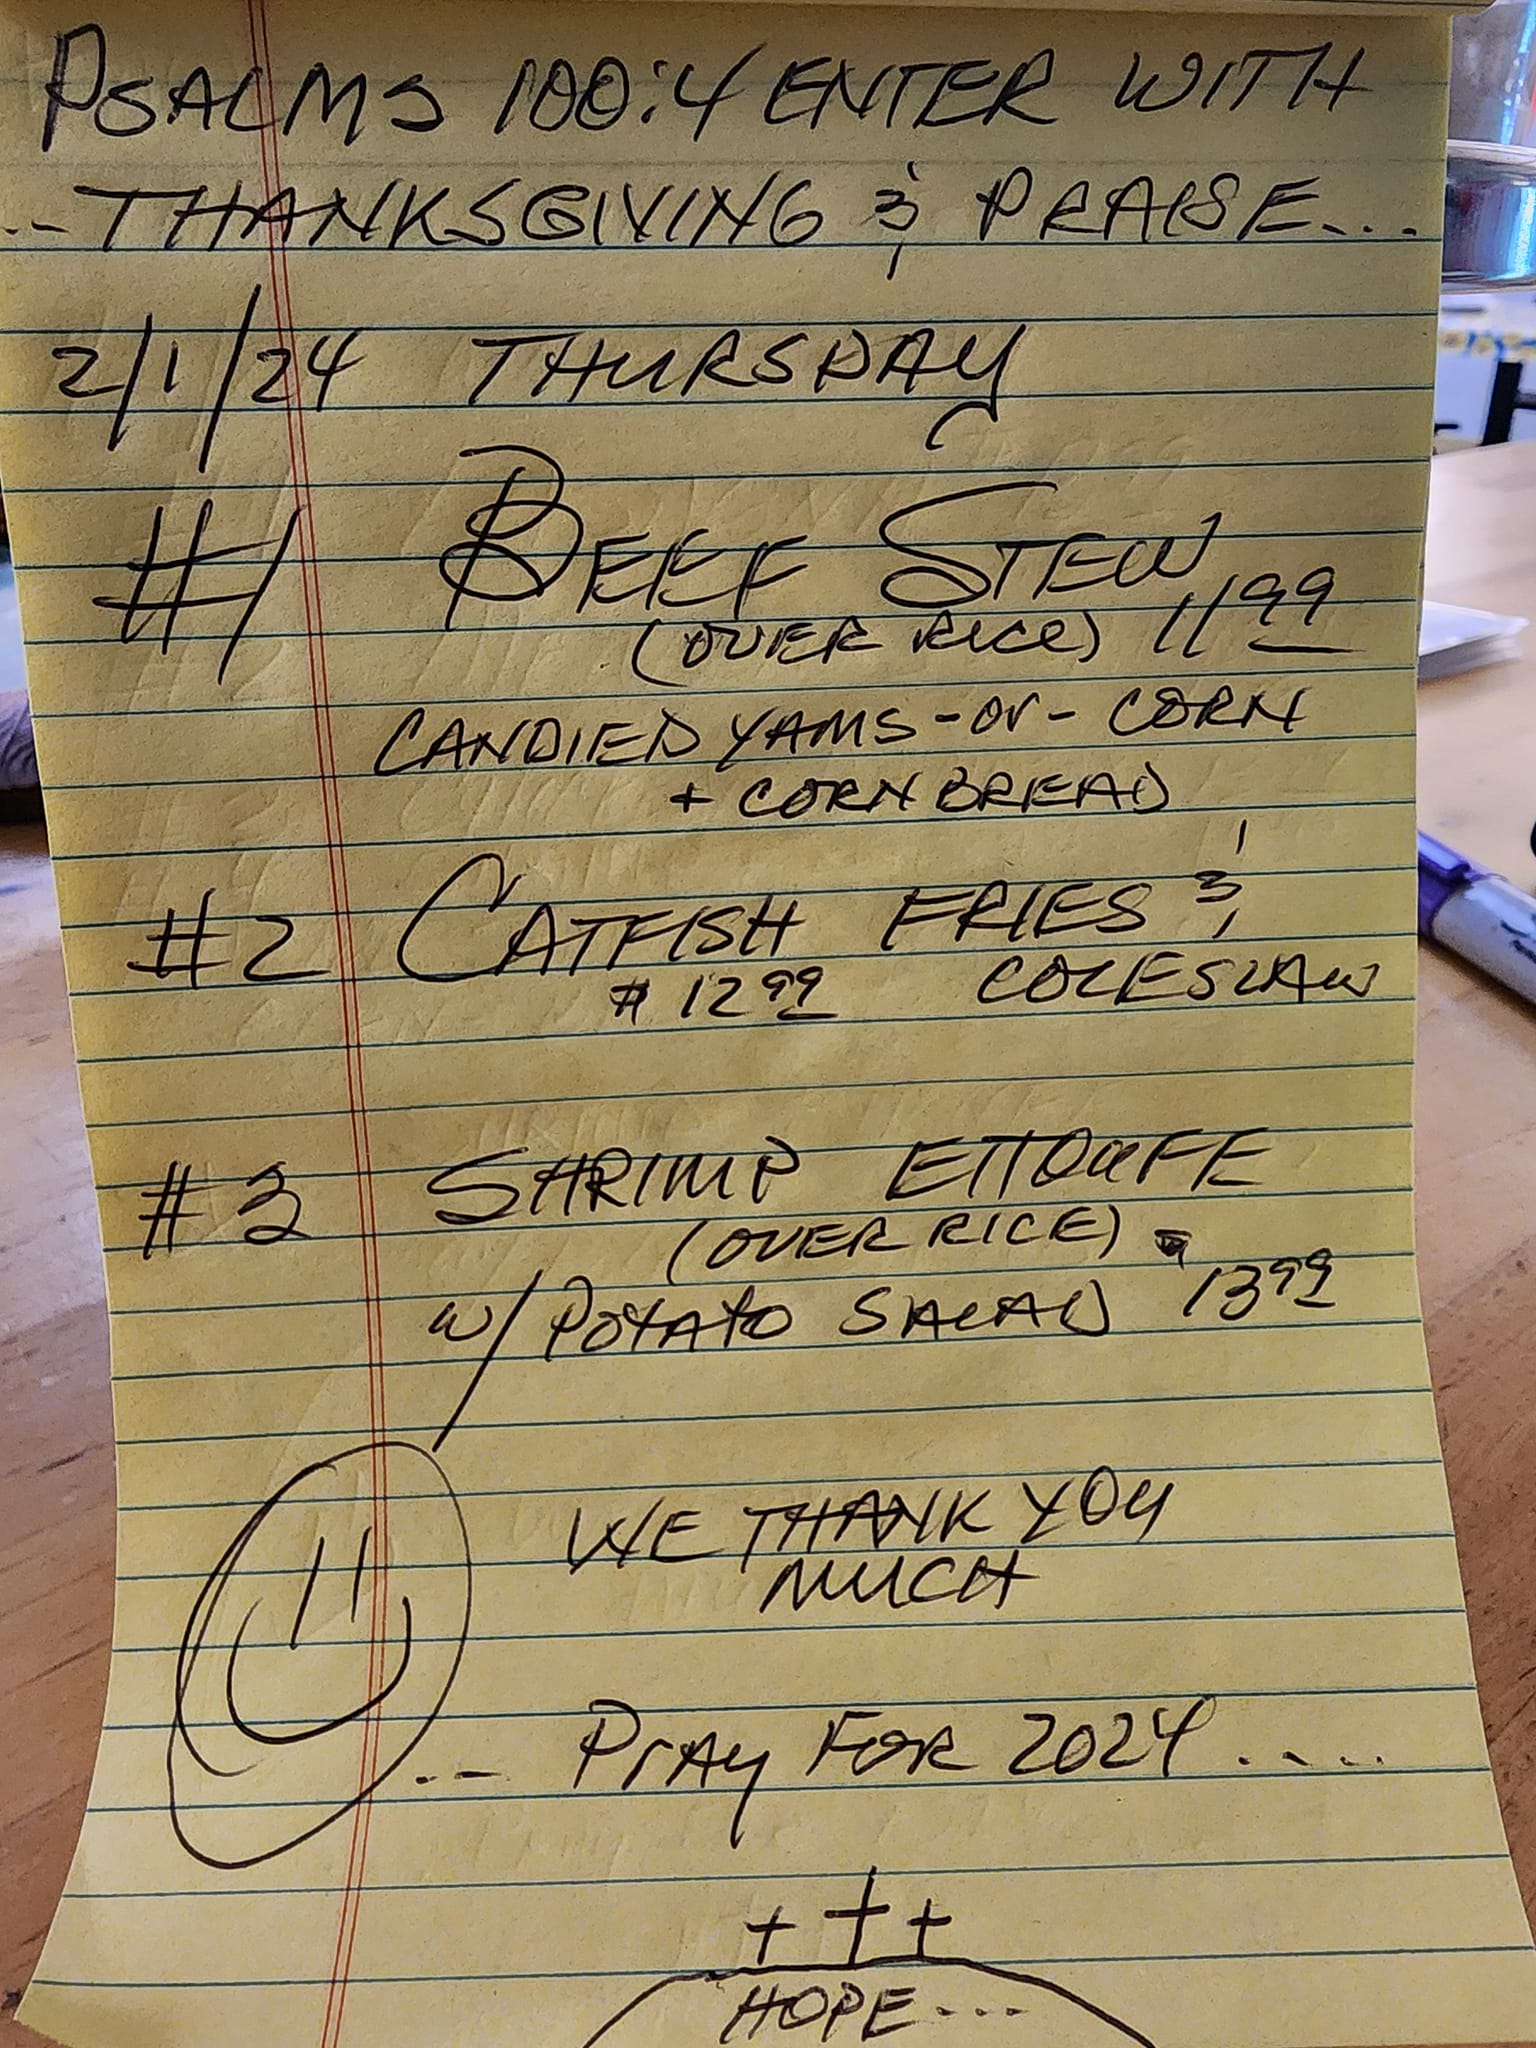 PSALMS 100:4 ENTER WITH
.. THANKSGIVING & PRAISE...
2/1/24 THURSDAY
#1 BEEF STEW
(OVER RICE) 11 99
CANDIED YAMS -or- CORN
+ CORN BREAD
#2 CATFISH FRIES &
# 12 99 COLESLAW
#3 SHRIMP ETTOUFE
(OVER RICE)
w/ POTATO SALAD 13 99
WE THANK YOU
MUCH
... PRAY FOR 2024 .....
HOPE...